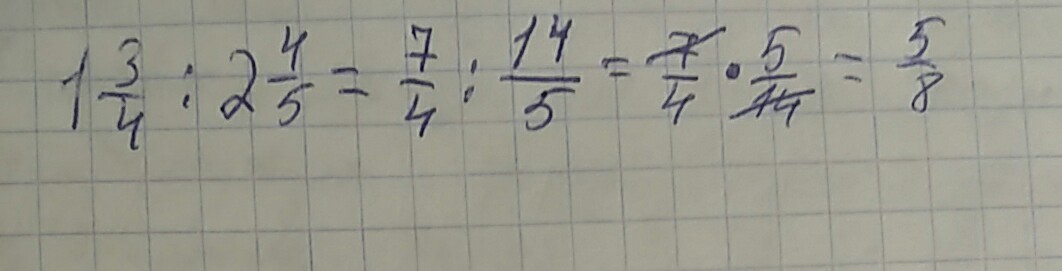 1 3/4 : 2 4/5 = 7/4 : 14/5 = 7/4 · 5/14 = 5/8